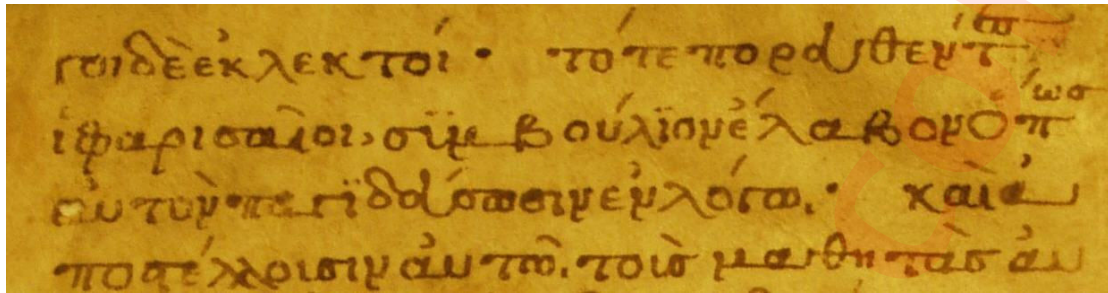 γοιδὲἐκλεκτοί· τότεπορευθέντ
ἱφαρισαῖοι, σϋμβούλϊονἔλαβονὅπωσ
ἀυτὸνπαγϊδεύσωσινἐνλόγω. καὶἀ
ποστέλλουσινἀυτῶ. τοὺσ μαθητὰσ ἀυ